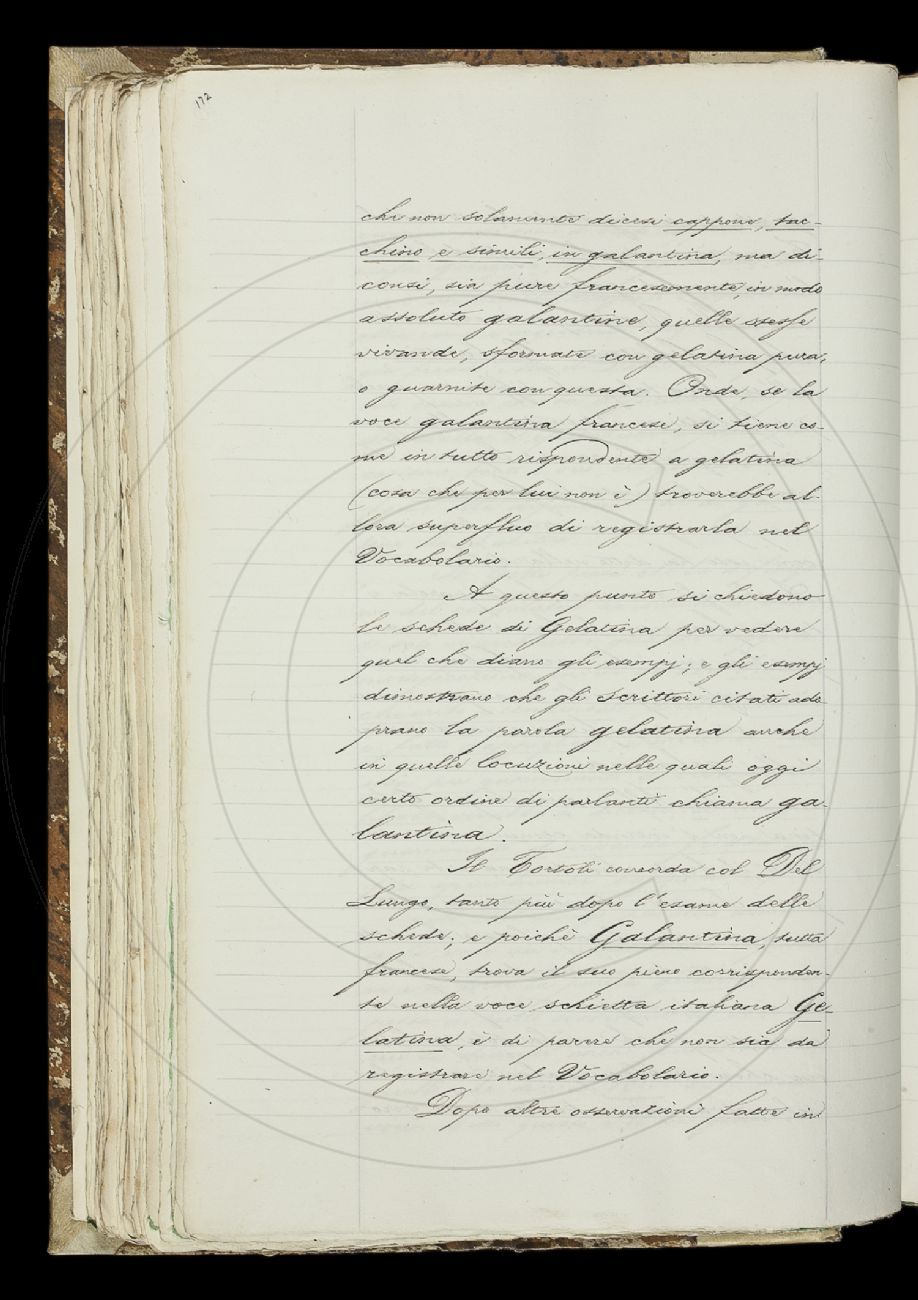 172
che non solamente dicesi cappone, tac-
chino e simili, in galantina, ma di
consi, sia pure francesemente, in modo
assoluto galantine, quelle stesse
vivande, sformate con gelatina pura,
o guarnite con questa. Onde, se la
voce galantina francese, si tiene co-
me in tutto rispondente a gelatina
(cosa che per lui non è) troverebbe al-
lora superfluo di registrarla nel
Vocabolario.
A questo punto si chiedono
le schede di Gelatina per vedere
quel che diano gli esempj; e gli esempj
dimostrano che gli scrittori citati ado
prano la parola gelatina anche
in quelle locuzioni nelle quali oggi
certo ordine di parlanti chiama ga-
lantina.
Il Tortoli concorda col Del
Lungo, tanto più dopo l'esame delle
schede; e poichè Galantina, tutta
francese, trova il suo pieno corrisponden-
te nella voce schietta italiana Ge-
latina, è di parere che non sia da
registrare nel Vocabolario.
Dopo altre osservazioni fatte in